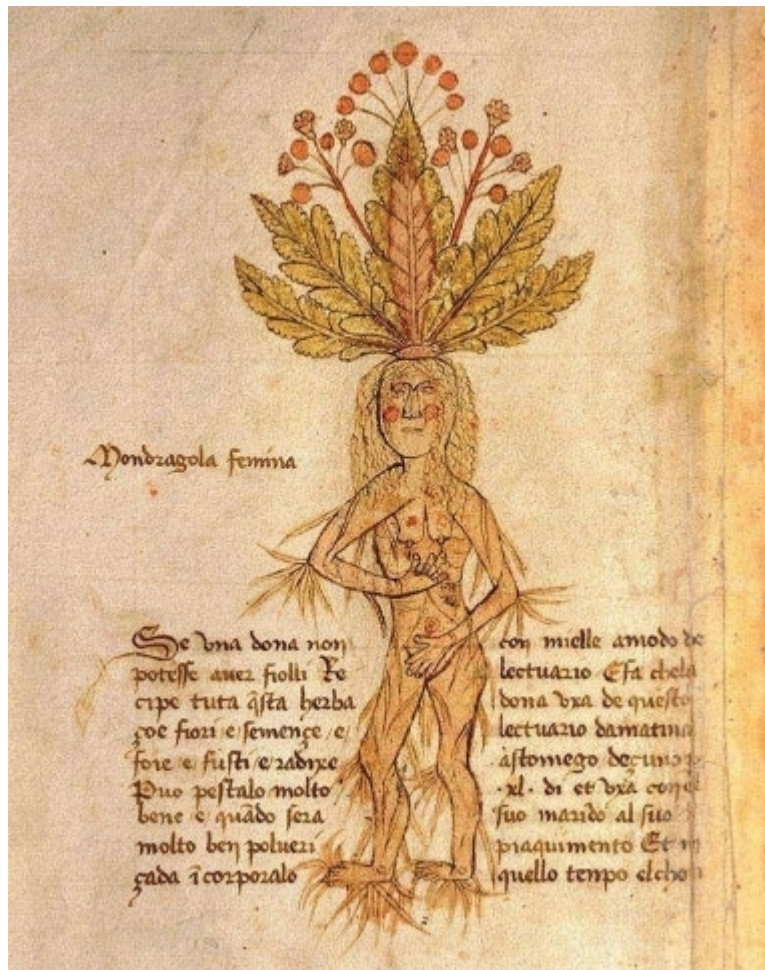 Mondragola femina
Se vna dona non
potesse auer fiolli Re
cipe tuta q̄sta herba
çoe fiori e semençe e
foie e fusti e radixe
Puo pestalo molto
bene e quādo sera
molto ben polueri
çada ī corporalo
con mielle amodo de
lectuario E fa chela
dona vxa de questo
lectuario damatina
astomego deçuno
.xl. di et vxa con el
suo marido al suo
piaquimento Et in
quello tenpo el